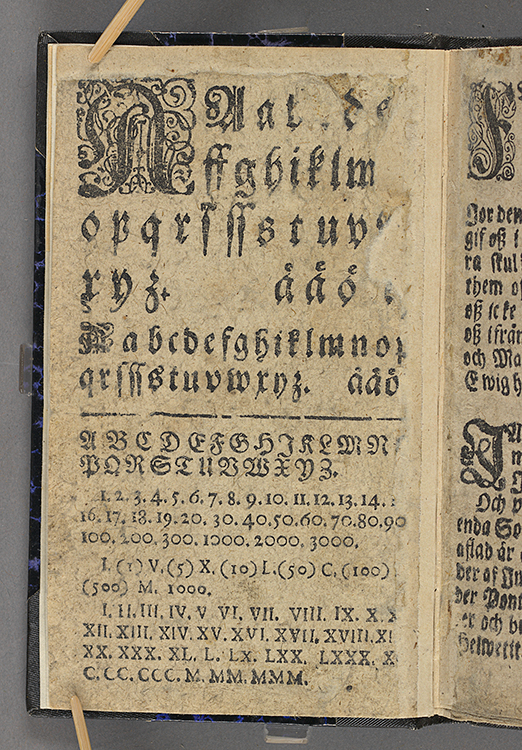 A A a b d
ff g h i k l m
o p q r ſ ſſ s t u v
x y z. å ä ö
A a b c d e f g h i k l m n o p
q r ſ ſſ s t u v w x y z. å ä ö
A B C D E F G H J K L M N
P Q R S T U V W X Y Z.
1. 2. 3. 4. 5. 6. 7. 8. 9. 10. 11. 12. 13. 14.
16. 17. 18. 19. 20. 30. 40. 50. 60. 70. 80. 90
100. 200. 300. 1000. 2000. 3000.
I. (1) V. (5) X. (10) L. (50) C. (100)
(500) M. 1000.
I. II. III. IV. V VI. VII. VIII. IX. X. X
XII. XIII. XIV. XV. XVI. XVII. XVIII. XI
XX. XXX. XL. L. LX. LXX. LXXX. X
C. CC. CCC. M. MM. MMM.
F
Jor den
gif oß i
ra ſkul
them o
oß icke
oß ifrån
och Ma
Ewigh
J
Och p
enda So
aflad är
der af Ju
der Pont
er och be
Helwete